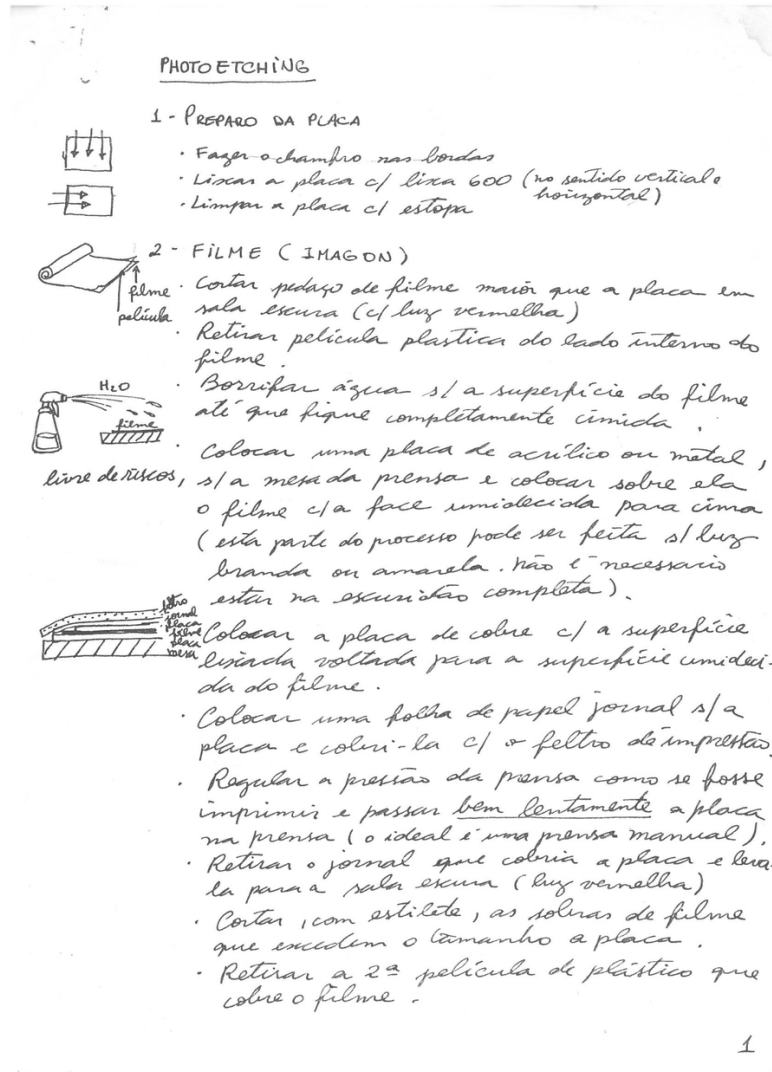 PHOTOETCHING
1 - PREPARO DA PLACA
· Fazer o chamfro nas bordas
· Lixar a placa c/ lixa 600 (no sentido vertical e
horizontal)
· Limpar a placa c/ estopa
2 - FILME (IMAGON)
filme
película
· Cortar pedaço de filme maior que a placa em
sala escura (c/ luz vermelha)
· Retirar película plastica do lado interno do
filme.
H2O
filme
· Borrifar água s/ a superfície do filme
até que fique completamente úmida.
· Colocar uma placa de acrílico ou metal,
livre de riscos, s/ a mesa da prensa e colocar sobre ela
o filme c/ a face umidecida para cima
(esta parte do processo pode ser feita s/ luz
branda ou amarela. Não é necessario
estar na escuridão completa).
feltro
jornal
placa
filme
placa
mesa
Colocar a placa de cobre c/ a superfície
lixada voltada para a superfície umideci-
da do filme.
· Colocar uma folha de papel jornal s/ a
placa e cobri-la c/ o feltro de impressão.
· Regular a pressão da prensa como se fosse
imprimir e passar bem lentamente a placa
na prensa (o ideal é uma prensa manual).
· Retirar o jornal que cobria a placa e leva-
la para a sala escura (luz vermelha)
· Cortar, com estilete, as sobras de filme
que excedem o tamanho a placa.
· Retirar a 2ª película de plástico que
cobre o filme.
1